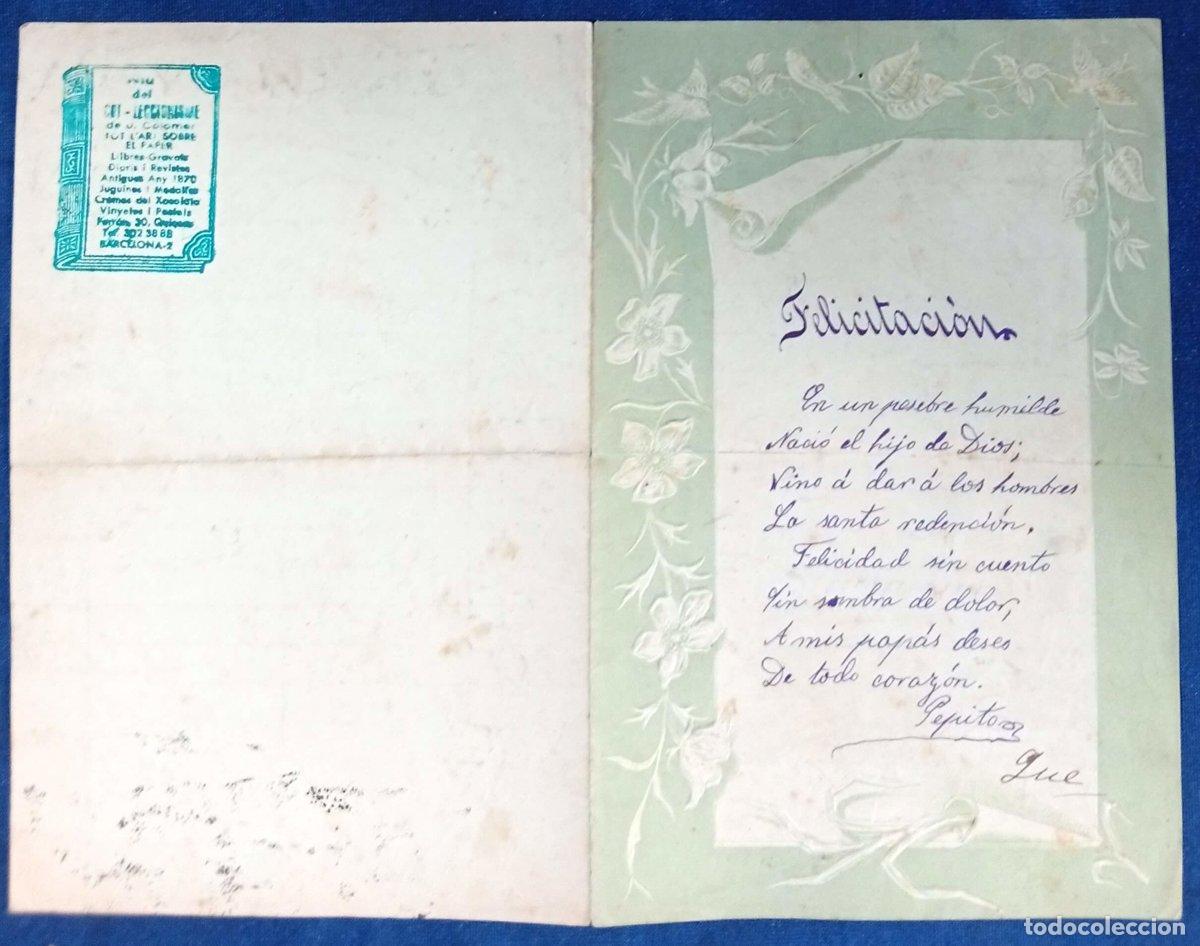 del
de J. Colomer
TOT L'ART SOBRE
EL PAPER
Llibres-Gravats
Diaris i Revistes
Antigues Any 1870
Juguines i Medalles
Cromos del Xocolata
Vinyetes i Pastels
Ferrán, 30,
Tel. 302 38 88
BARCELONA-2
Felicitación
En un pesebre humilde
Nació el hijo de Dios;
Vino á dar á los hombres
La santa redención.
Felicidad sin cuento
Sin sombra de dolor,
A mis papás deseo
De todo corazón.
Pepito
todocoleccion